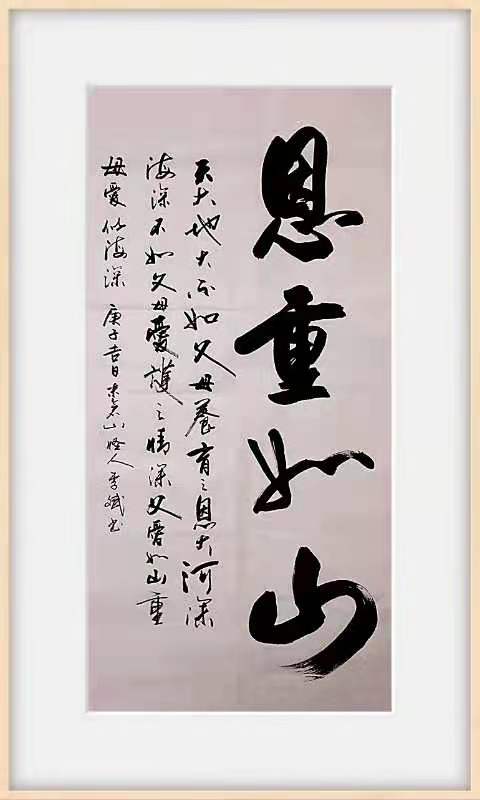 恩重如山
天大地大不如父母養育之恩大河深
海深不如父母愛護之情深父愛如山重
母愛似海深 庚子吉日 山怪人李斌书